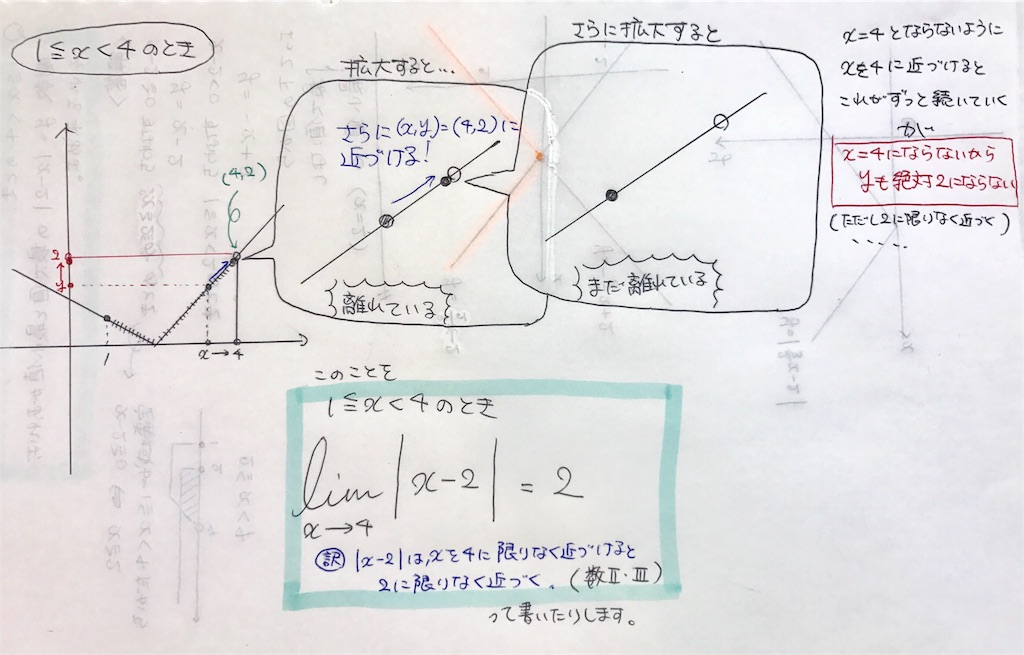 1≦x<4 のとき
拡大すると…
さらに拡大すると
x=4 とならないように
xを4に近づけると
これがずっと続いていく
x=4にならないから
yも絶対2にならない
(ただし2に限りなく近づく)
さらに(x,y)=(4,2)に
近づける!
(4,2)
2
y
1
x→4
離れている
まだ離れている
このことを
1≦x<4 のとき
lim |x-2| = 2
x→4
訳 |x-2|は,xを4に限りなく近づけると
2に限りなく近づく. (数Ⅱ・Ⅲ)
って書いたりします。